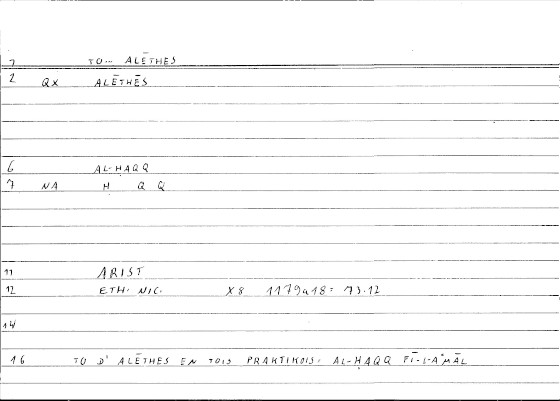 1 TO... ALĒTHES
2 QX ALĒTHĒS
6 AL-ḤAQQ
7 NA Ḥ Q Q
11 ARIST
12 ETH. NIC. X8 1179a18 = 73.12
14
16 TO D' ALĒTHES EN TOIS PRAKTIKOIS. AL-ḤAQQ FĪ-L-AʿMĀL